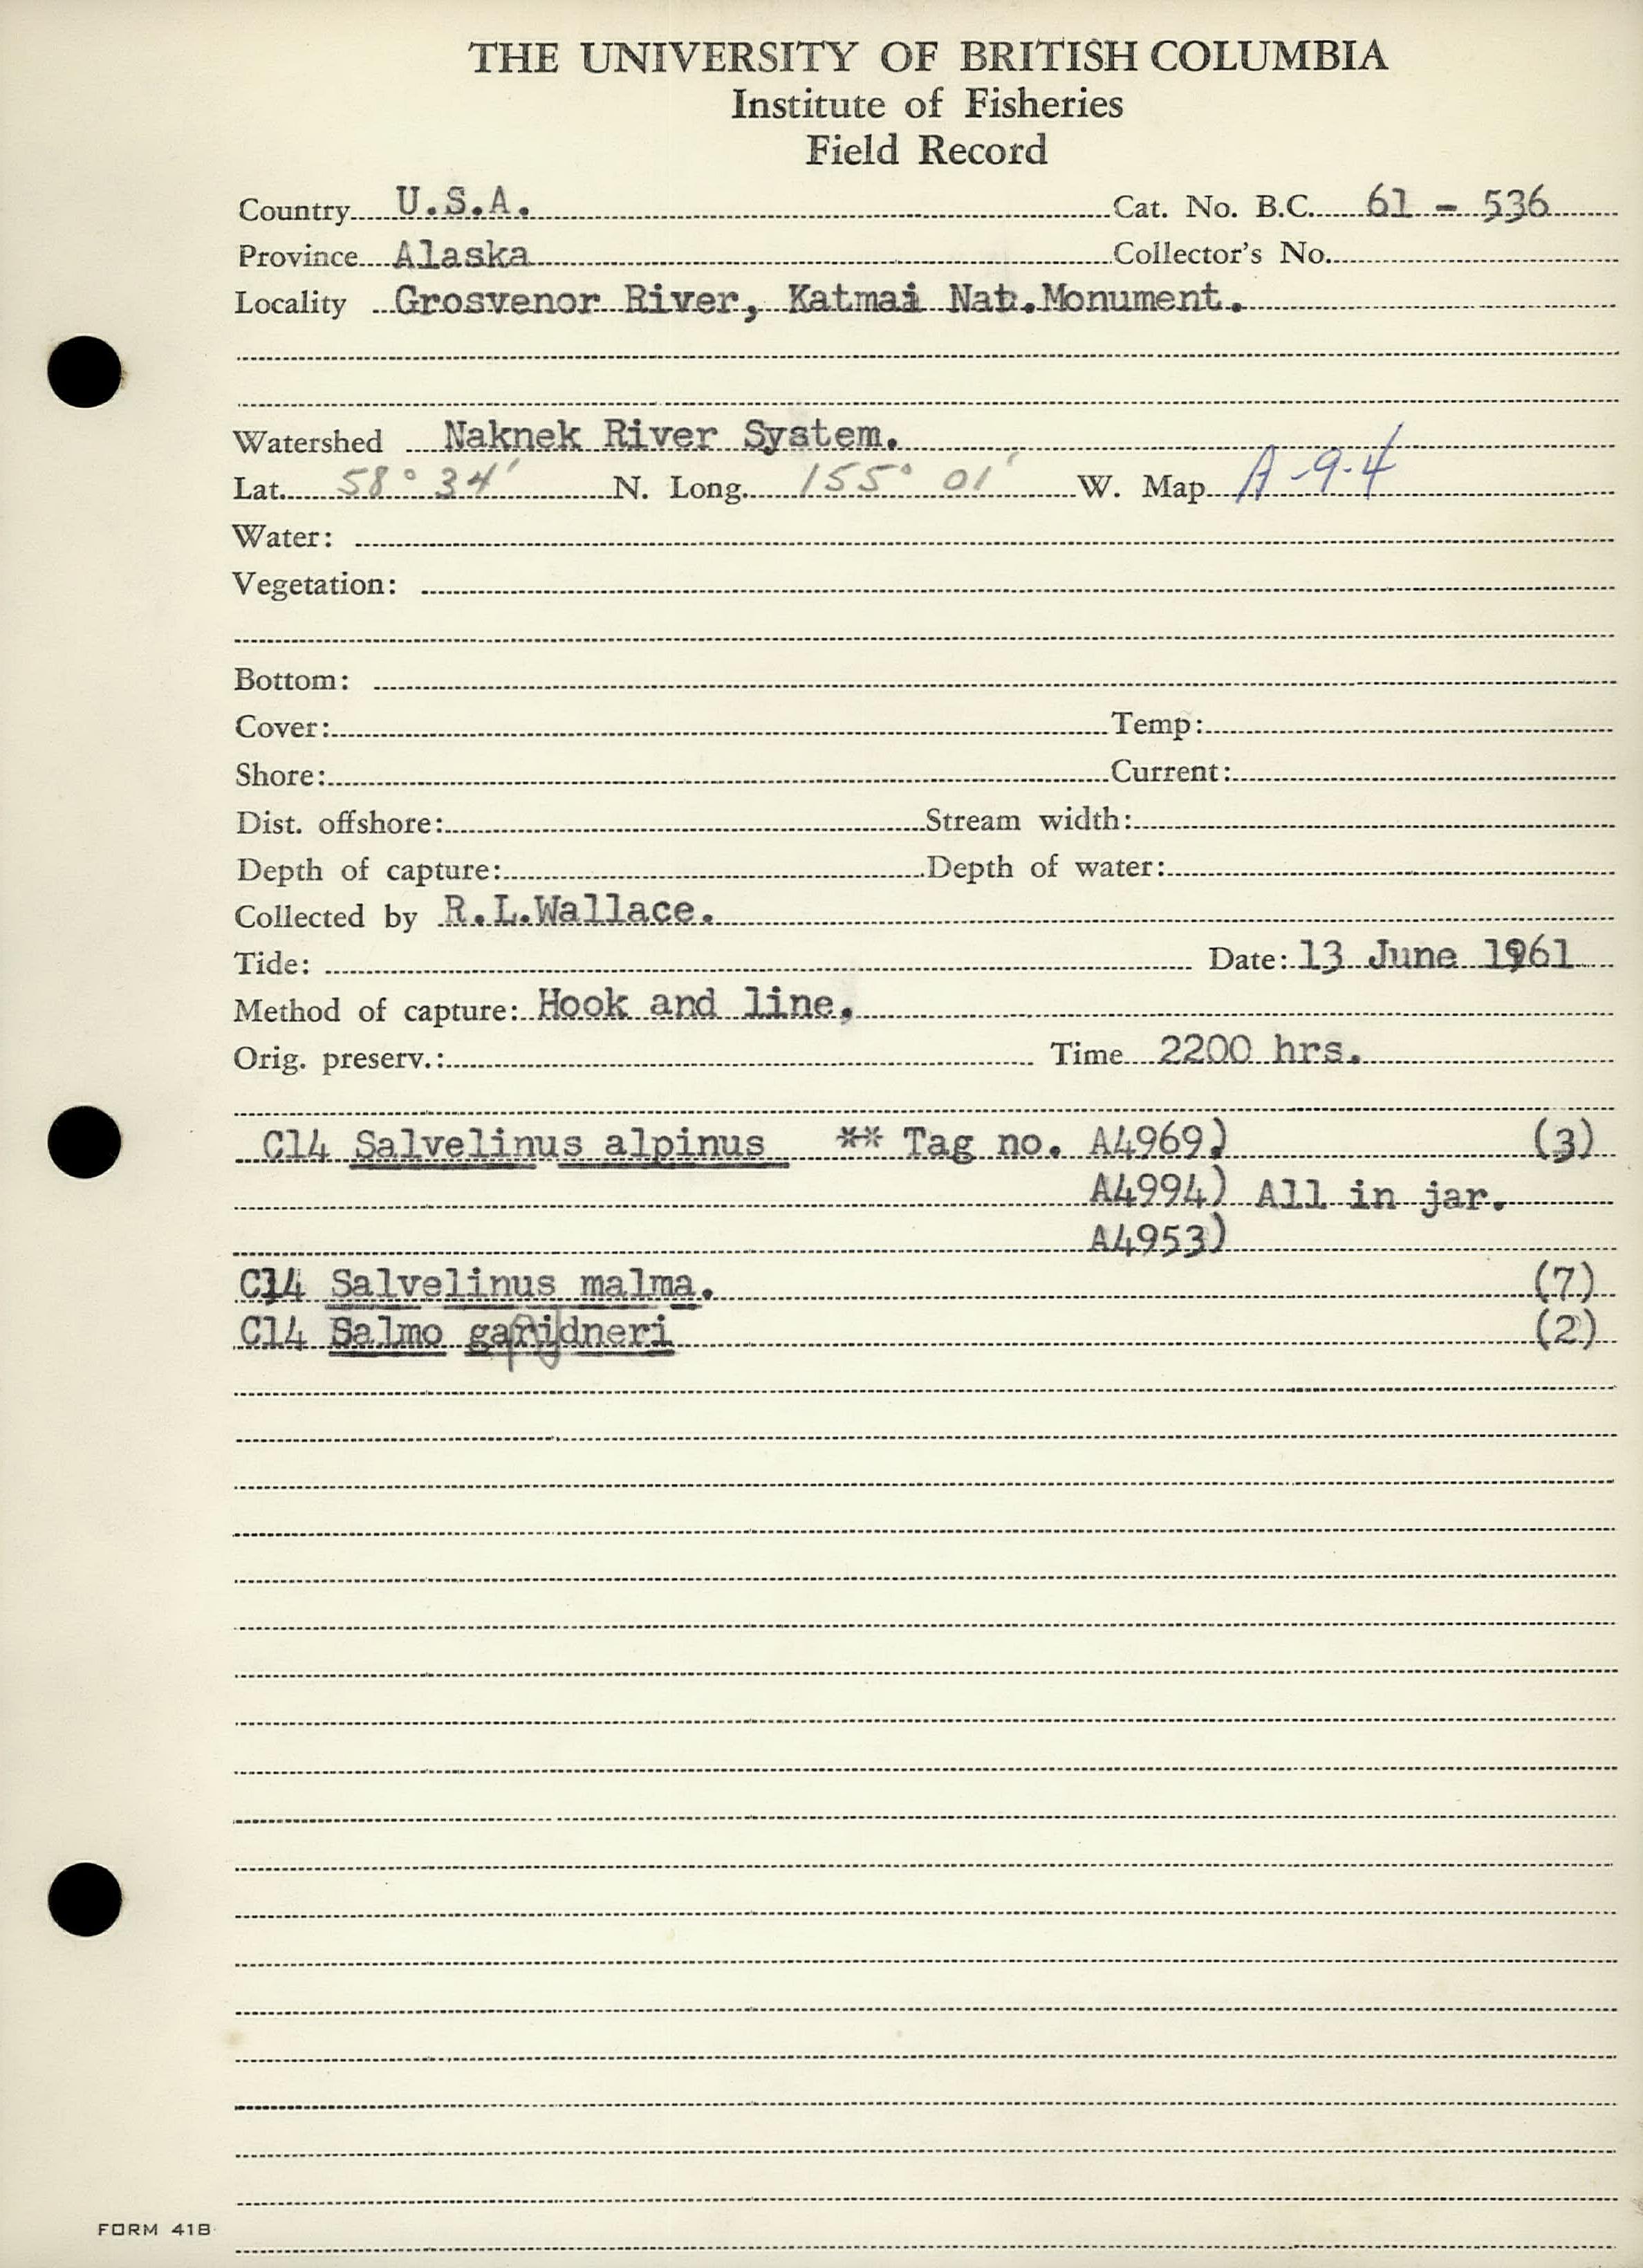 THE UNIVERSITY OF BRITISH COLUMBIA
Institute of Fisheries
Field Record
Country U.S.A. Cat. No. B.C. 61 - 536
Province Alaska Collector's No.
Locality Grosvenor River, Katmai Nat.Monument.
Watershed Naknek River System.
Lat. 58° 34' N. Long. 155° 01' W. Map A-9-4
Water:
Vegetation:
Bottom:
Cover: Temp:
Shore: Current:
Dist. offshore: Stream width:
Depth of capture: Depth of water:
Collected by R.L.Wallace.
Tide: Date: 13 June 1961
Method of capture: Hook and line.
Orig. preserv.: Time 2200 hrs.
C14 Salvelinus alpinus ** Tag no. A4969) (3)
A4994) All in jar.
A4953)
C14 Salvelinus malma. (7)
C14 Salmo garidneri (2)
FORM 41B